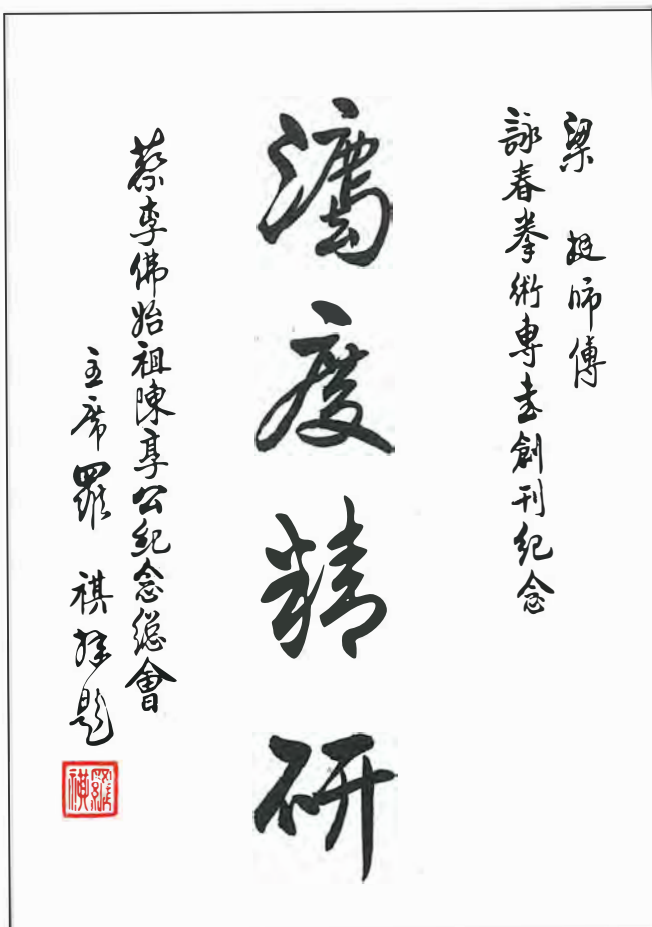 梁 挺師傅
詠春拳術專書創刊紀念
灋度精研
蔡李佛始祖陳享公紀念總會
主席羅 祺題
羅祺